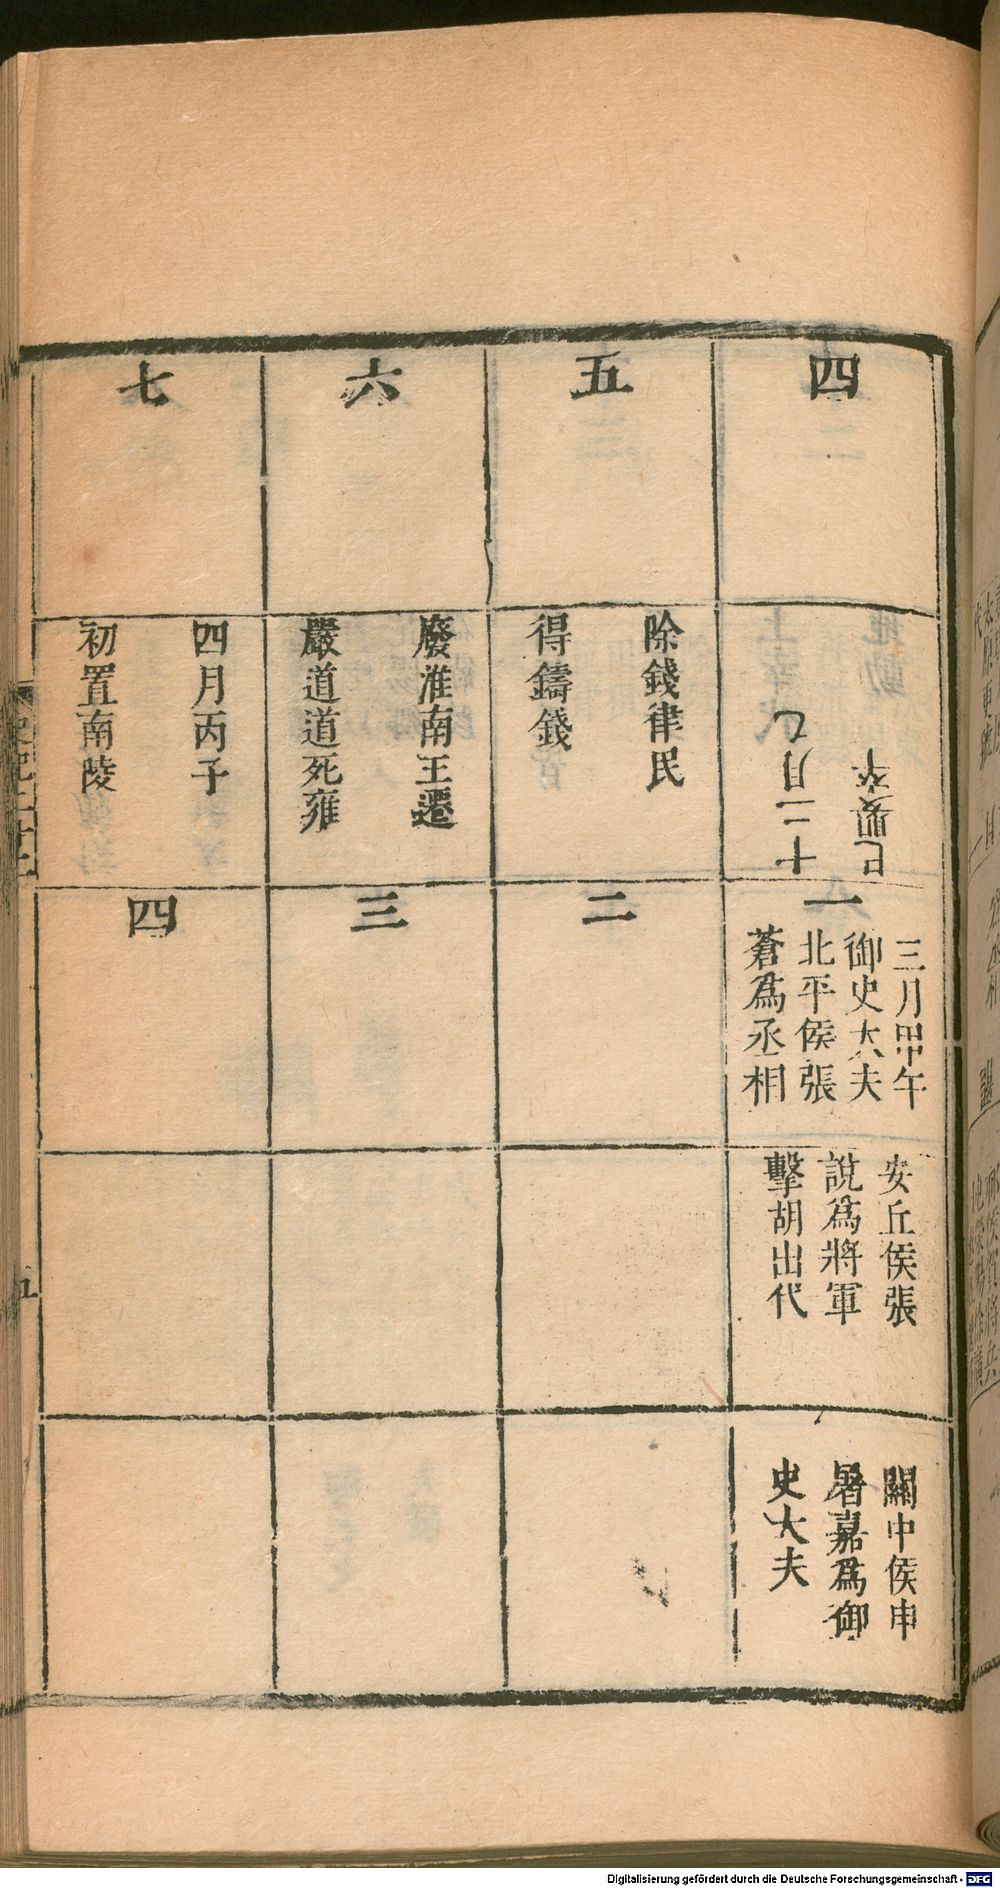 四
十二月乙
巳嬰卒
一
三月甲午
御史大夫
北平侯張
蒼爲丞相
安丘侯張
說爲將軍
擊胡出代
關中侯申
屠嘉爲御
史大夫
五
除錢律民
得鑄錢
二
六
廢淮南王遷
嚴道道死雍
三
七
四月丙子
初置南陵
四
史記二十二
五
Digitalisierung gefördert durch die Deutsche Forschungsgemeinschaft - DFG